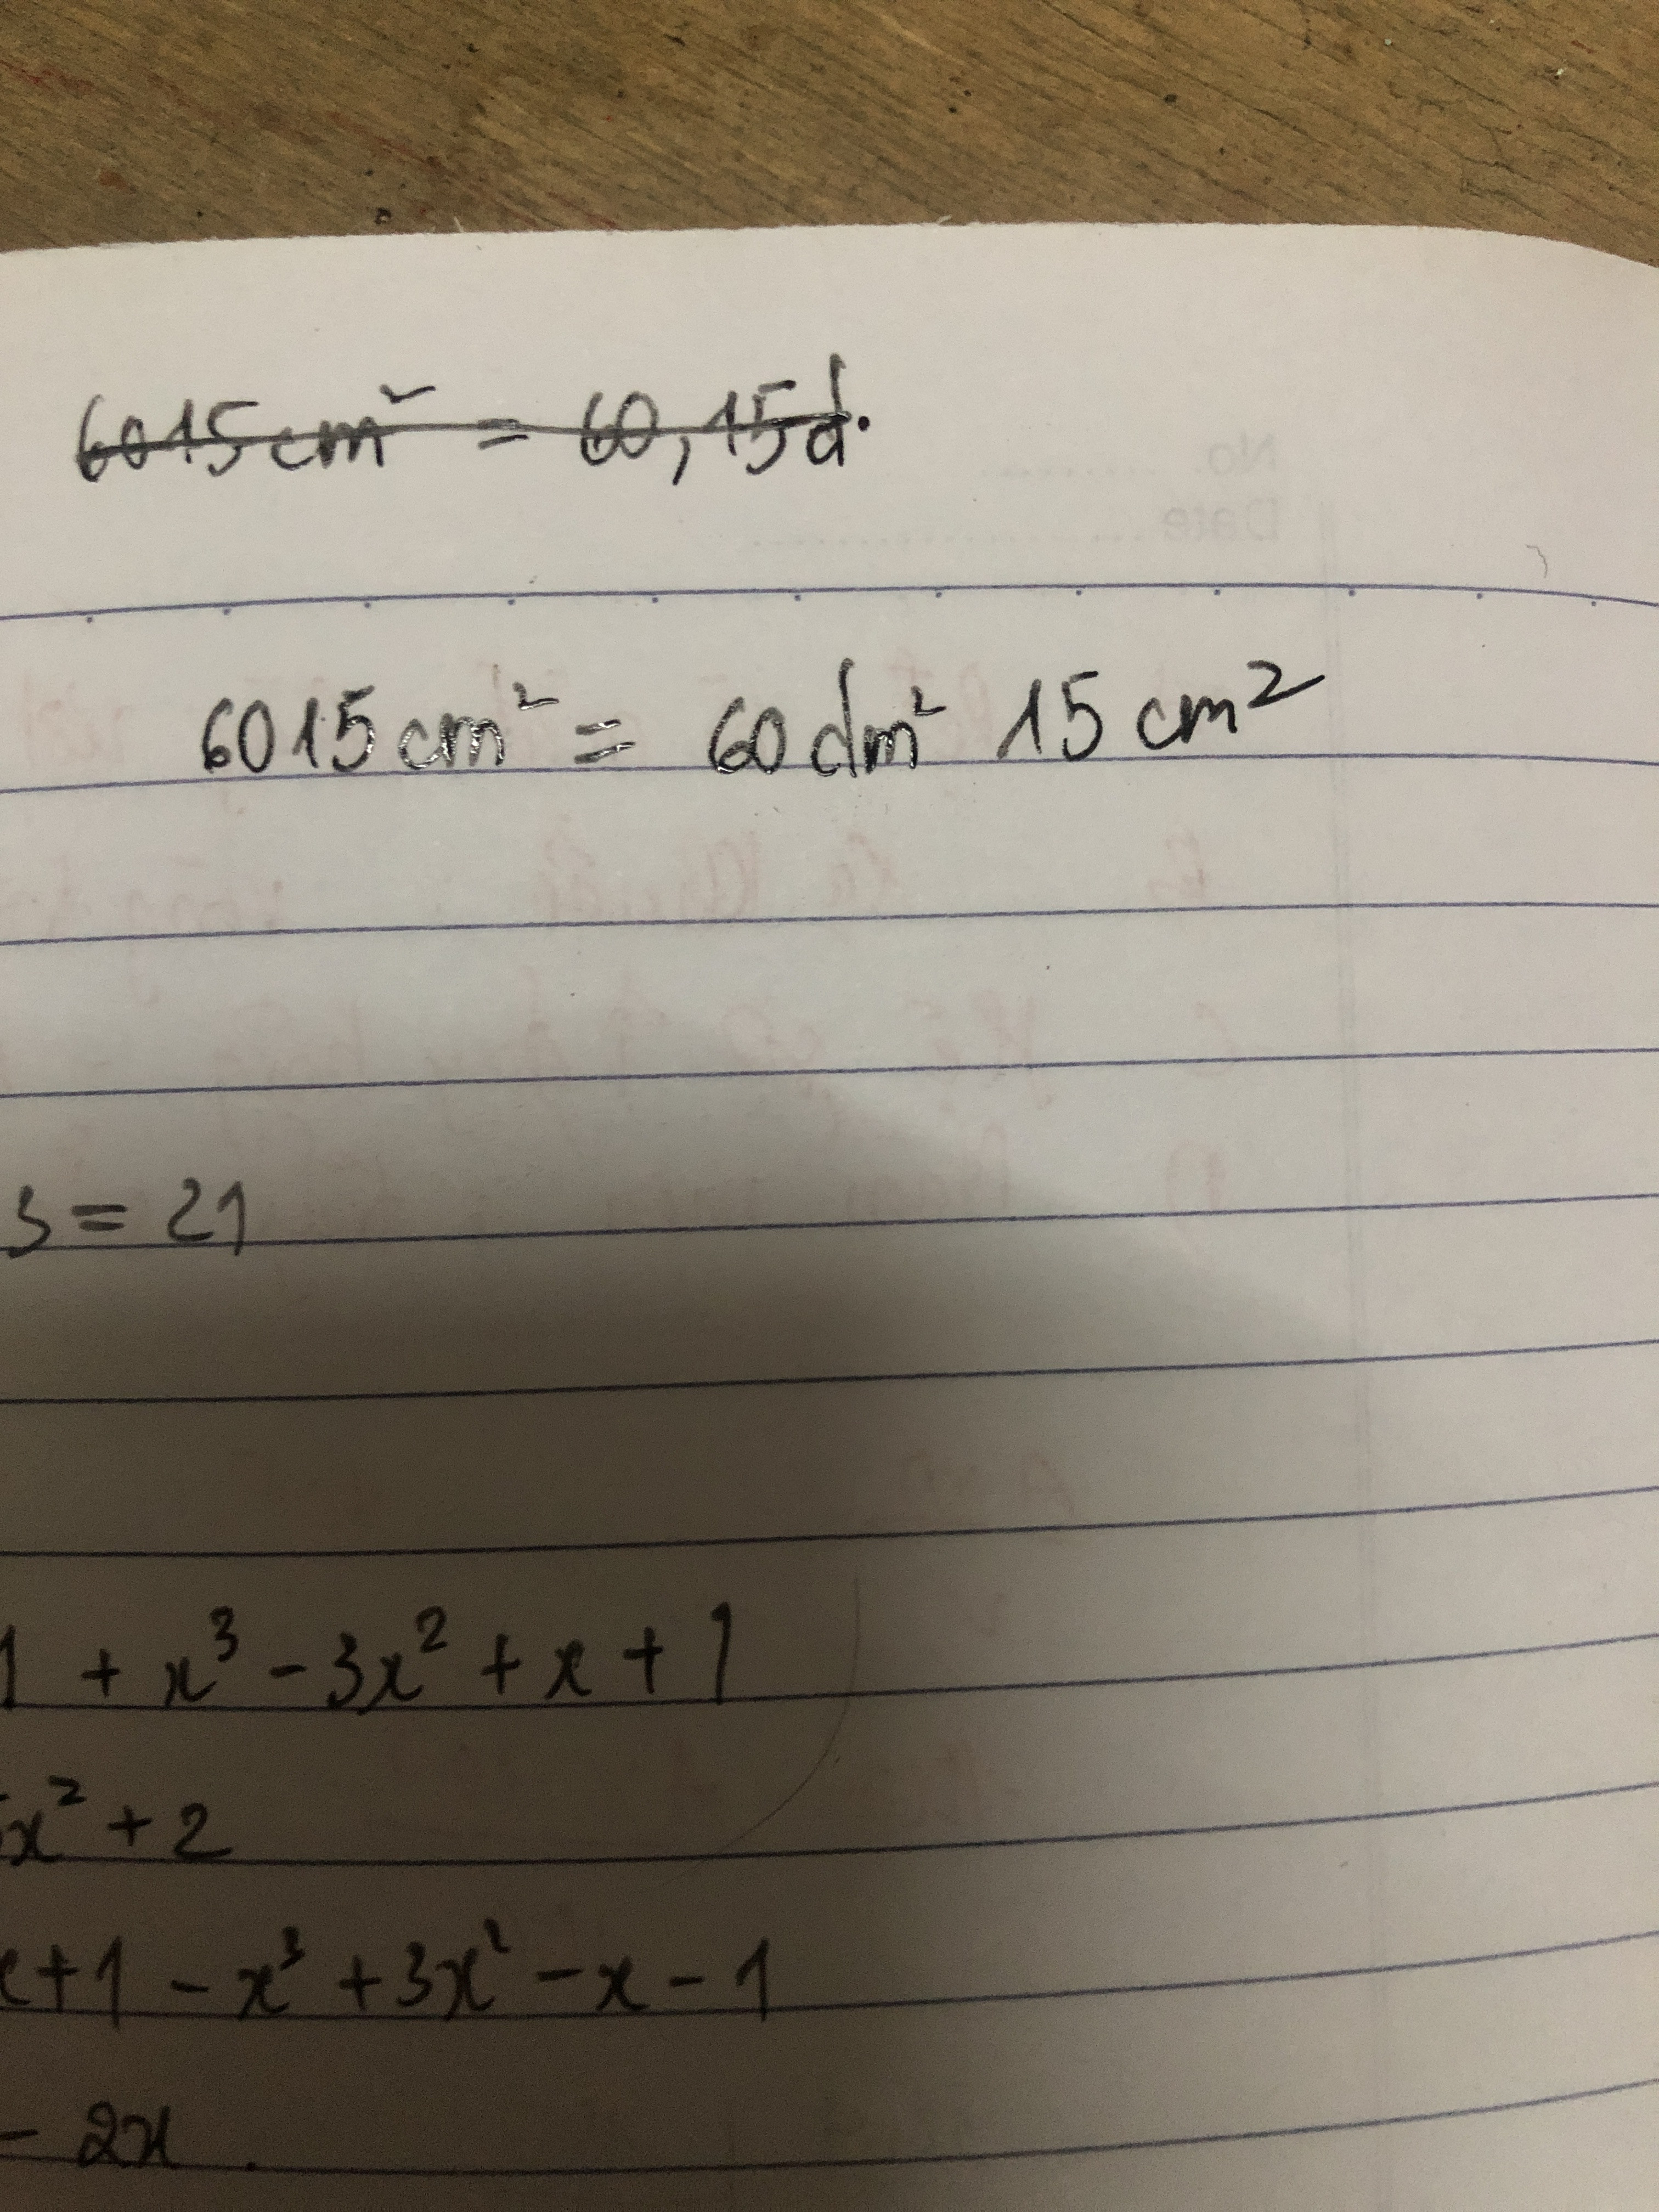 6015cm² = 60,15d.
6015cm² = 60dm² 15cm²
3 = 21
1 + x³ - 3x² + x + 1
x² + 2
x + 1 - x³ + 3x² - x - 1
- 2x.